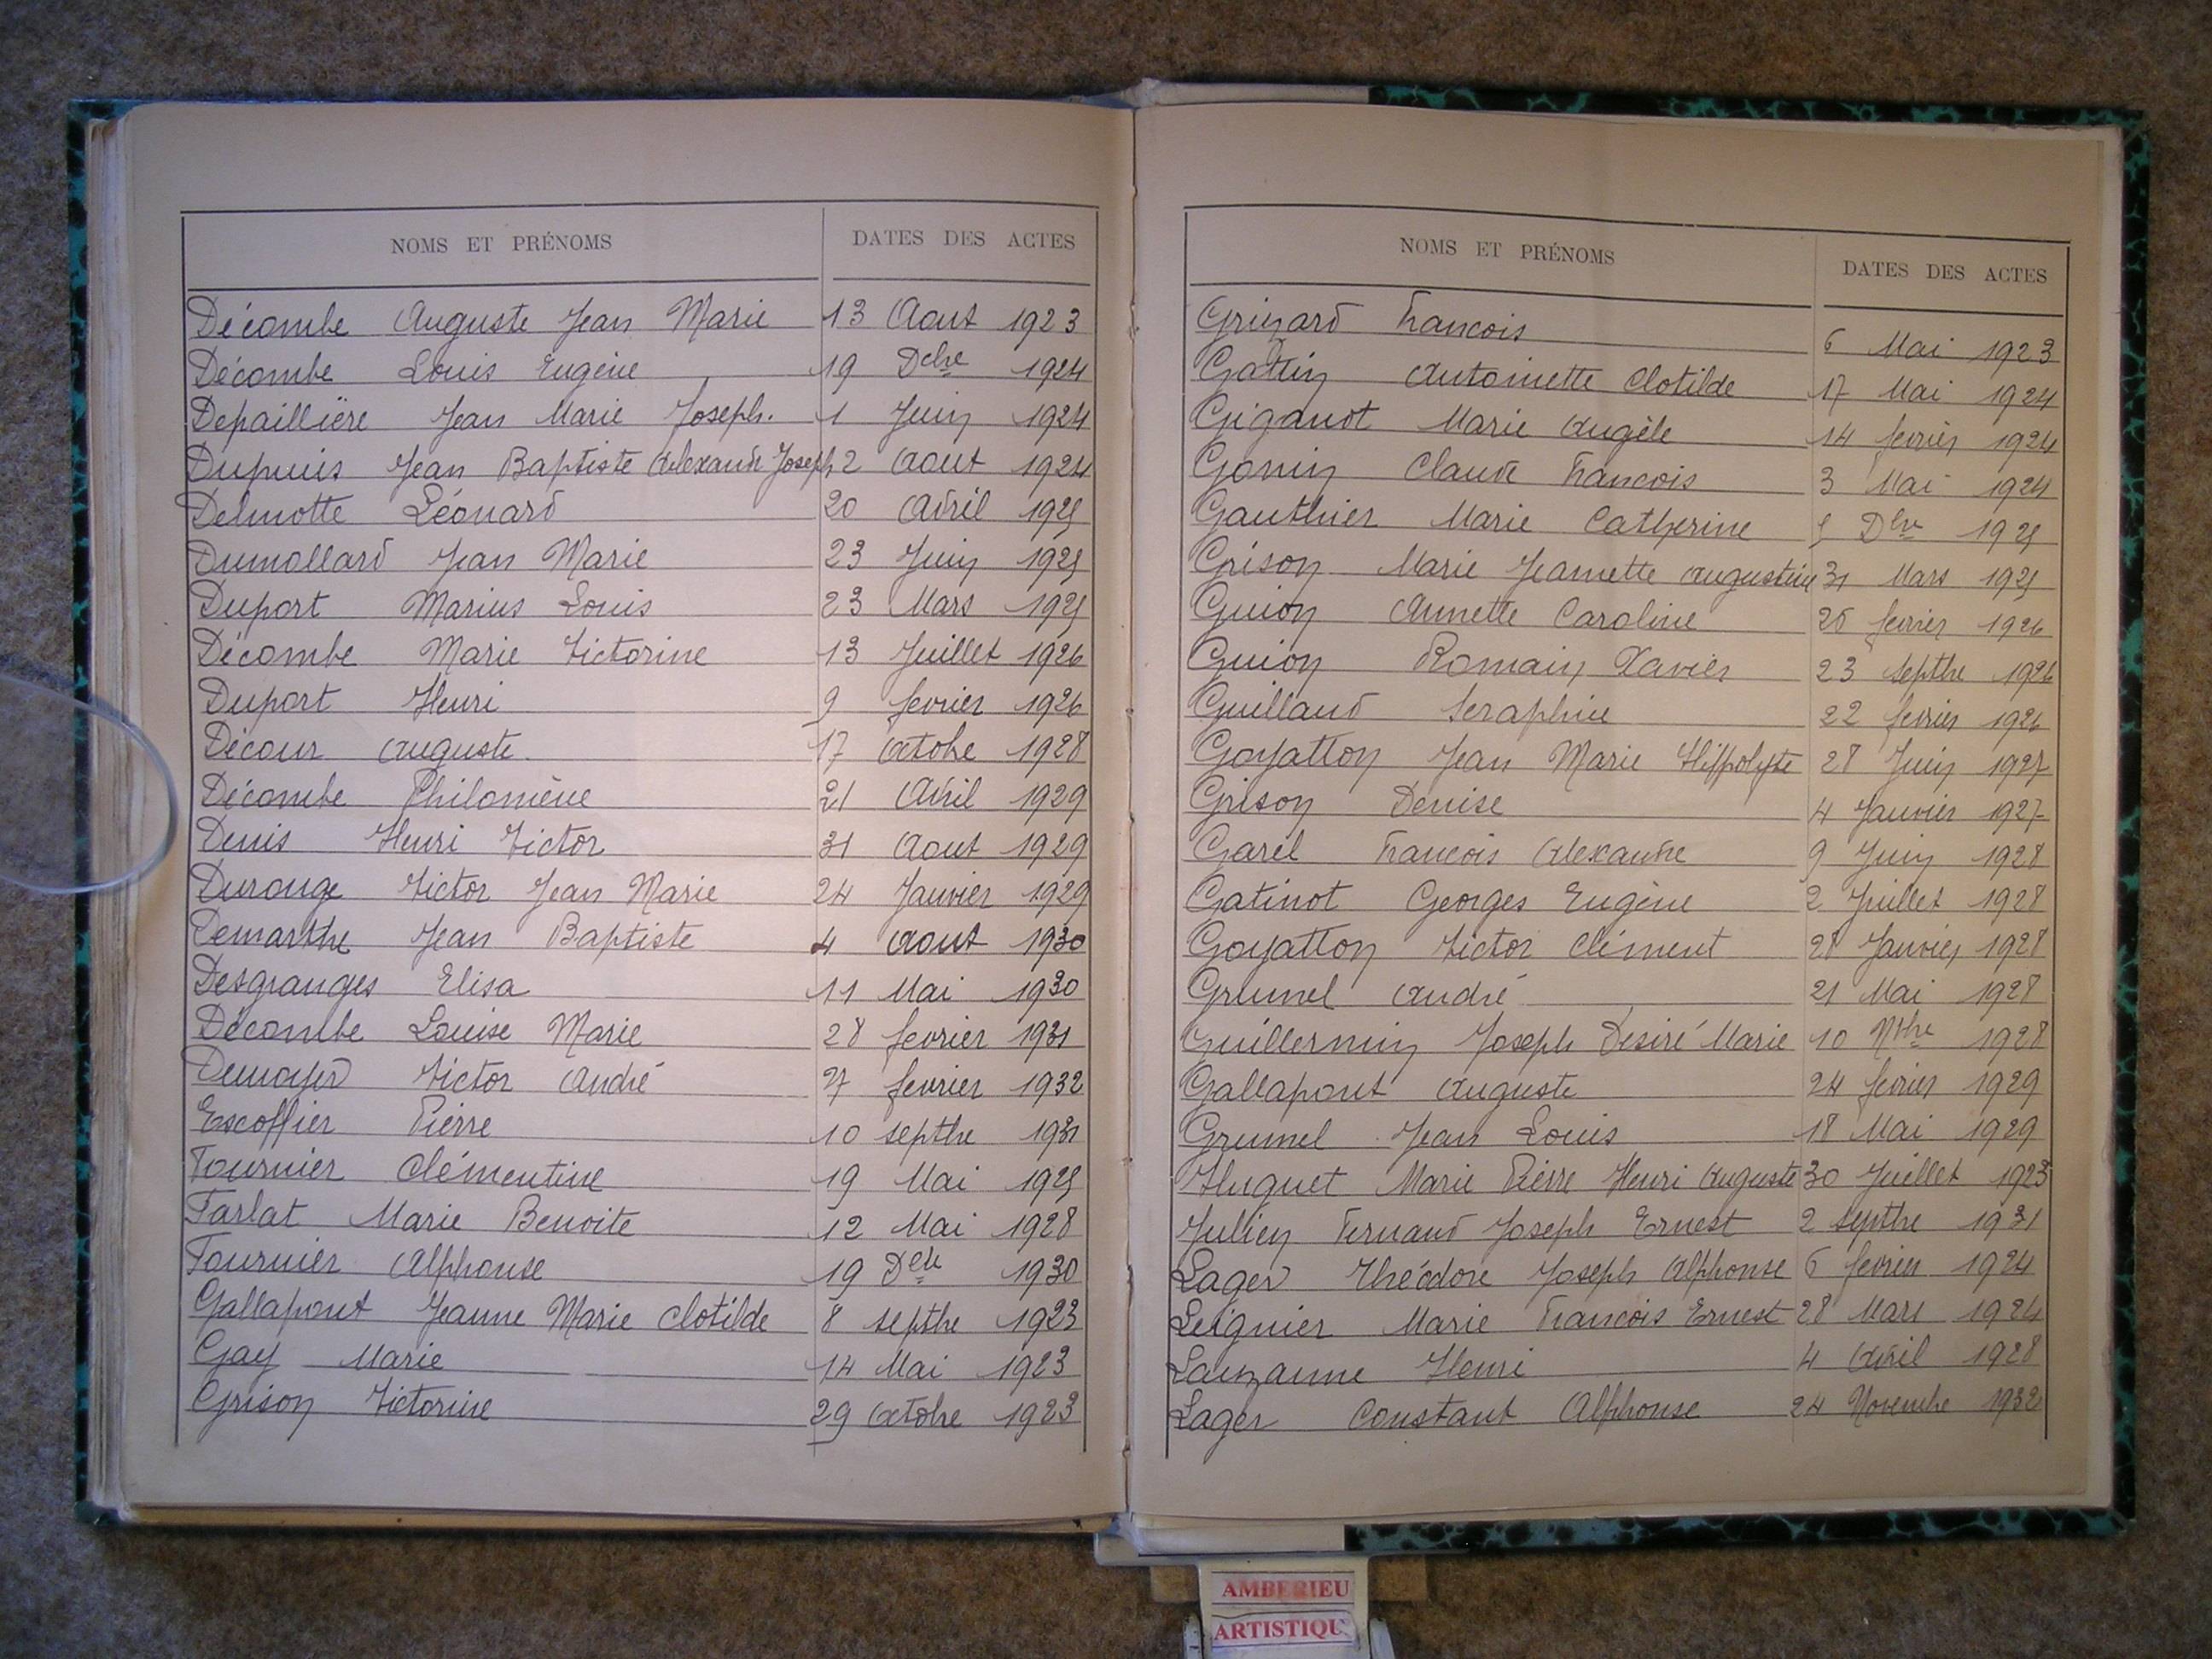 NOMS ET PRÉNOMS DATES DES ACTES
Décombe Auguste Jean Marie 13 Aout 1923
Décombe Louis Eugène 19 Dcbre 1924
Depaillière Jean Marie Joseph. 1 Juin 1924
Dupuis Jean Baptiste Alexandre Joseph 2 Aout 1924
Delmotte Léonard 20 Avril 1925
Dumollard Jean Marie 23 Juin 1925
Duport Marius Louis 23 Mars 1925
Décombe Marie Victorine 13 Juillet 1926
Duport Henri 9 fevrier 1926
Décour Auguste 17 Octobre 1928
Décombe Philomène 21 Avril 1929
Denis Henri Victor 31 Aout 1929
Durouge Victor Jean Marie 24 Janvier 1929
Demarthe Jean Baptiste 4 Aout 1930
Desgranges Elisa 11 Mai 1930
Décombe Louise Marie 28 fevrier 1931
Victor André 27 fevrier 1932
Escoffier Pierre 10 septbre 1931
Fournier Clémentine 19 Mai 1925
Farlat Marie Benoite 12 Mai 1928
Fournier Alphonse 19 Dcbre 1930
Gallapont Jeanne Marie Clotilde 8 septbre 1923
Gay Marie 14 Mai 1923
Grison Victorine 29 Octobre 1923
NOMS ET PRÉNOMS DATES DES ACTES
Francois 6 Mai 1923
Gattin Antoinette Clotilde 17 Mai 1924
Giganot Marie Angèle 14 fevrier 1924
Gonin Claude Francois 3 Mai 1924
Gauthier Marie Catherine 5 Dbre 1925
Grison Marie Jeannette Augustine 31 Mars 1925
Guion Annette Caroline 26 fevrier 1926
Guion Romain Xavier 23 septbre 1926
Guillaud Seraphine 22 fevrier 1926
Goyatton Jean Marie Hippolyte 28 Juin 1927
Grison Denise 4 Janvier 1927
Garel Francois Alexandre 9 Juin 1928
Gatinot Georges Eugène 2 Juillet 1928
Goyatton Victor Clément 28 Janvier 1928
Grumel André 21 Mai 1928
Guillermin Joseph Desiré Marie 10 Nbre 1928
Gallapont Auguste 24 fevrier 1929
Grumel Jean Louis 18 Mai 1929
Huguet Marie Pierre Henri Auguste 30 Juillet 1923
Julien Fernand Joseph Ernest 2 septbre 1931
Lager Théodore Joseph Alphonse 6 fevrier 1924
Leignier Marie Francois Ernest 28 Mars 1924
Lauzanne Henri 4 Avril 1928
Lager Constant Alphonse 24 Novembre 1932
AMBERIEU
ARTISTIQU